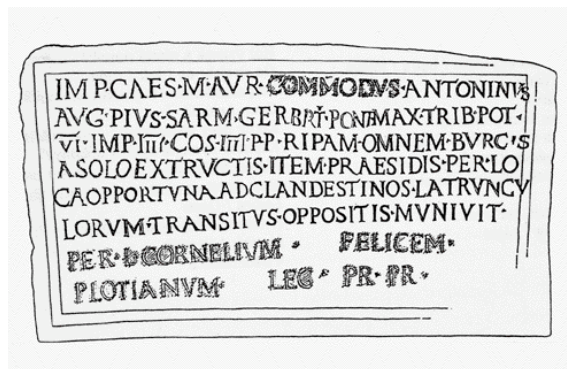 IMP·CAES·M·AVR·COMMODVS·ANTONINVS
AVG·PIVS·SARM·GER·BRIT·PONT·MAX·TRIB·POT·
VI·IMP·IIII·COS·IIII·PP·RIPAM·OMNEM·BVRGIS
A SOLO EXTRVCTIS·ITEM·PRAESIDIS·PER·LO
CA OPPORTVNA AD CLANDESTINOS·LATRVNCV
LORVM·TRANSITVS·OPPOSITIS·MVNIVIT·
PER·L·CORNELIVM · FELICEM·
PLOTIANVM· LEG· PR·PR·